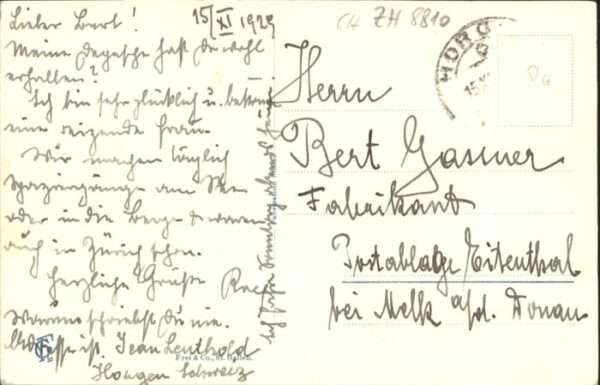 Lieber Bert!
15/XI 1929
CH ZH 8810
Meine Depesche hast du wohl
erhalten?
Ich bin sehr glücklich u.
eine reizende Frau
Wir machen täglich
Spaziergänge am See
oder in die Berge & waren
auch in Zürich schon.
Herzliche Grüße
Warum schreibst Du nie.
Adresse ist Jean Leuthold
Horgen Schweiz
Frei & Co., St. Gallen.
HORG
Herrn
Bert Gassner
Fabrikant
Postablage Eitenthal
bei Melk a/d. Donau